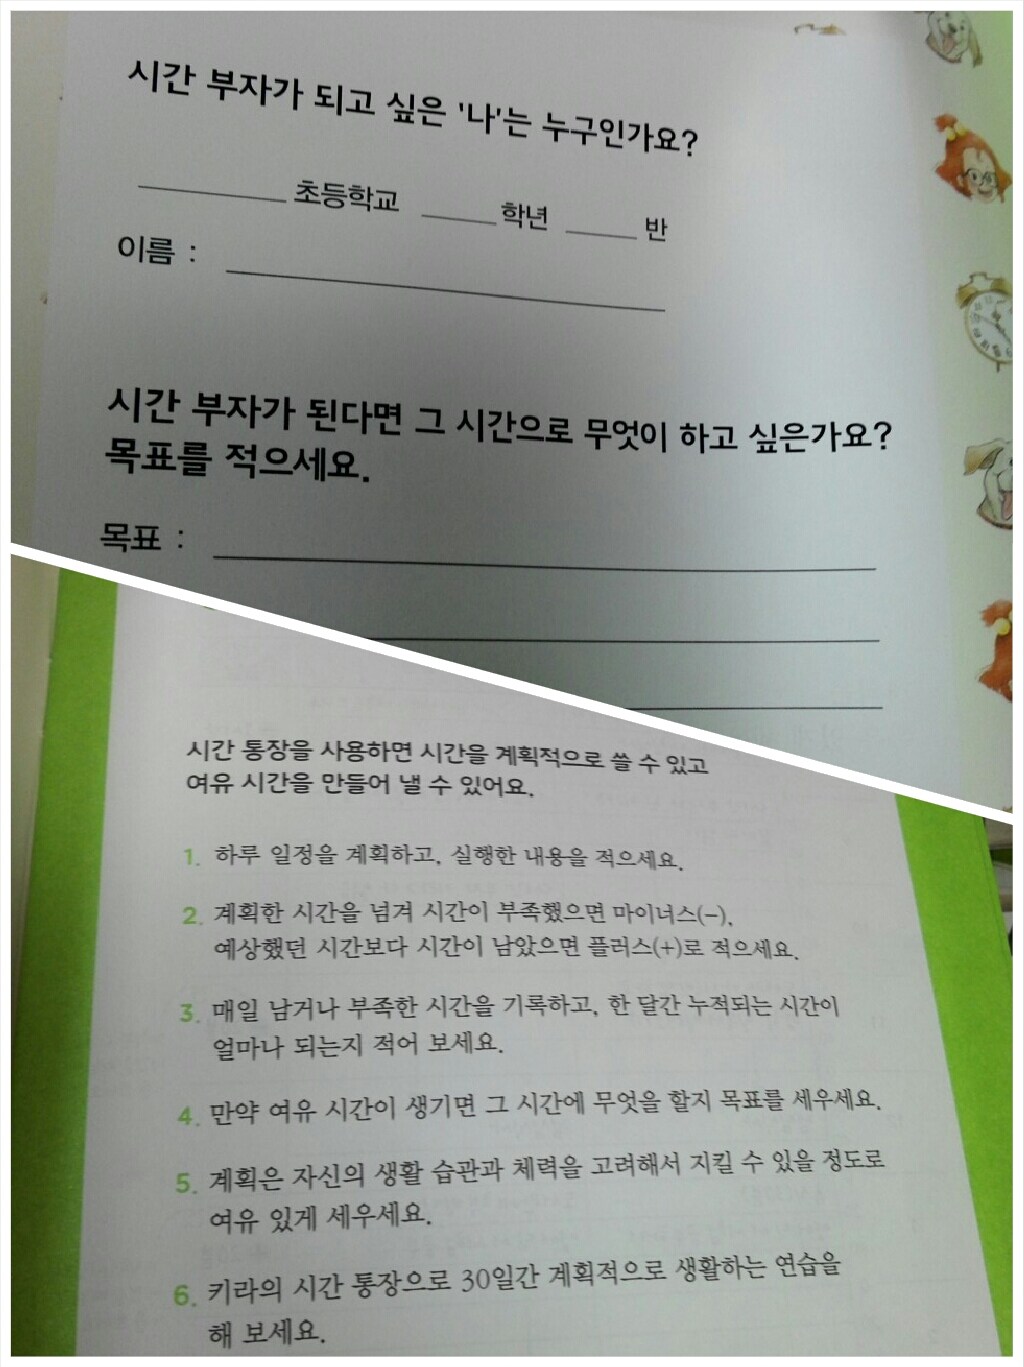 시간 부자가 되고 싶은 '나'는 누구인가요?
초등학교 학년 반
이름 :
시간 부자가 된다면 그 시간으로 무엇이 하고 싶은가요?
목표를 적으세요.
목표 :
시간 통장을 사용하면 시간을 계획적으로 쓸 수 있고
여유 시간을 만들어 낼 수 있어요.
1. 하루 일정을 계획하고, 실행한 내용을 적으세요.
2. 계획한 시간을 넘겨 시간이 부족했으면 마이너스(-),
예상했던 시간보다 시간이 남았으면 플러스(+)로 적으세요.
3. 매일 남거나 부족한 시간을 기록하고, 한 달간 누적되는 시간이
얼마나 되는지 적어 보세요.
4. 만약 여유 시간이 생기면 그 시간에 무엇을 할지 목표를 세우세요.
5. 계획은 자신의 생활 습관과 체력을 고려해서 지킬 수 있을 정도로
여유 있게 세우세요.
6. 키라의 시간 통장으로 30일간 계획적으로 생활하는 연습을
해 보세요.